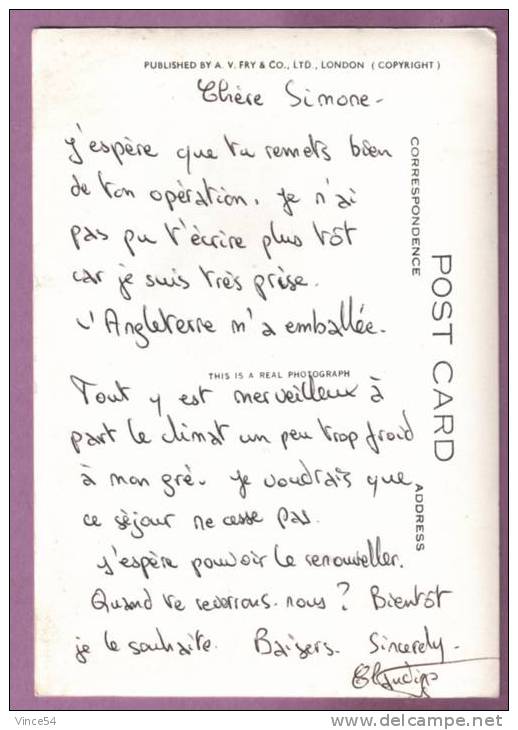 PUBLISHED BY A. V. FRY & CO., LTD., LONDON (COPYRIGHT)
Chère Simone -
J'espère que tu remets bien
de ton opération. Je n'ai
pas pu t'écrire plus tôt
car je suis très prise.
L'Angleterre m'a emballée.
THIS IS A REAL PHOTOGRAPH
Tout y est merveilleux à
part le climat un peu trop froid
à mon gré. Je voudrais que
ce séjour ne cesse pas.
J'espère pouvoir le renouveller.
Quand te reverrons-nous ? Bientôt
je le souhaite. Baisers. Sincerely -
CORRESPONDENCE
POST CARD
ADDRESS
Vince54
www.delcampe.net